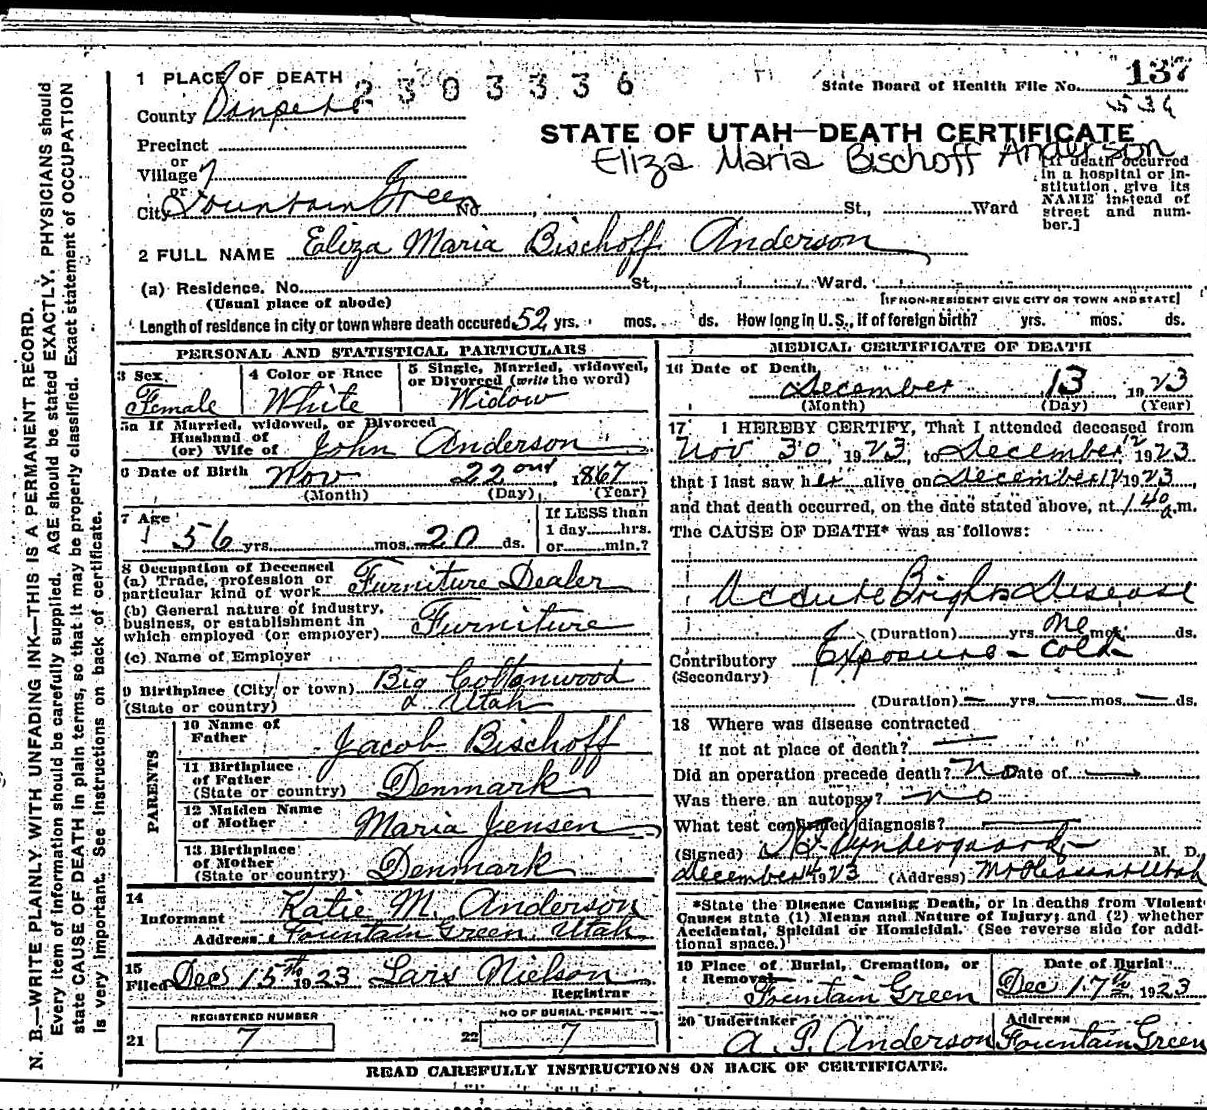 1 PLACE OF DEATH
2303336
State Board of Health File No. 137
534
County Sanpete
STATE OF UTAH—DEATH CERTIFICATE
Eliza Maria Bischoff Anderson
Precinct
or
Village
or
City Fountain Green No. St., Ward
[If death occurred in a hospital or in-
stitution, give its
NAME instead of
street and num-
ber.]
2 FULL NAME Eliza Maria Bischoff Anderson
(a) Residence. No. St., Ward.
(Usual place of abode) [IF NON-RESIDENT GIVE CITY OR TOWN AND STATE]
Length of residence in city or town where death occured 52 yrs. mos. ds. How long in U.S., if of foreign birth? yrs. mos. ds.
PERSONAL AND STATISTICAL PARTICULARS
3 Sex
Female
4 Color or Race
White
5 Single, Married, widowed,
or Divorced (write the word)
Widow
5a If Married, widowed, or Divorced
Husband of
(or) Wife of John Anderson
6 Date of Birth Nov 22ond, 1867
(Month) (Day) (Year)
7 Age
56 yrs. mos. 20 ds.
If LESS than
1 day......hrs.
or......min.?
8 Occupation of Deceased
(a) Trade, profession or
particular kind of work Furniture Dealer
(b) General nature of industry,
business, or establishment in
which employed (or employer) Furniture
(c) Name of Employer
9 Birthplace (City or town) Big Cottonwood
(State or country) Utah
PARENTS
10 Name of
Father Jacob Bischoff
11 Birthplace
of Father
(State or country) Denmark
12 Maiden Name
of Mother Maria Jensen
13 Birthplace
of Mother
(State or country) Denmark
14
Informant Katie M. Anderson
Address Fountain Green Utah
15
Filed Dec 15th 1923 Lars Nielson
Registrar
REGISTERED NUMBER
21 7
NO OF BURIAL PERMIT
22 7
MEDICAL CERTIFICATE OF DEATH
16 Date of Death
December 13 1923
(Month) (Day) (Year)
17 I HEREBY CERTIFY, That I attended deceased from
Nov 30, 1923, to December 12 1923
that I last saw her alive on December 12 1923,
and that death occurred, on the date stated above, at 1 40 a.m.
The CAUSE OF DEATH* was as follows:
Accute Brights Disease
(Duration) yrs. one mos. ds.
Contributory Exposure - Cold
(Secondary)
(Duration) — yrs. — mos. — ds.
18 Where was disease contracted
if not at place of death? —
Did an operation precede death? no Date of —
Was there an autopsy? no
What test confirmed diagnosis? —
(Signed) M. D.
December 14 1923 (Address) Mt Pleasant Utah
*State the Disease Causing Death, or in deaths from Violent
Causes state (1) Means and Nature of Injury; and (2) whether
Accidental, Suicidal or Homicidal. (See reverse side for addi-
tional space.)
19 Place of Burial, Cremation, or
Removal
Fountain Green
Date of Burial
Dec 17th, 1923
20 Undertaker
A. P. Anderson
Address
Fountain Green
READ CAREFULLY INSTRUCTIONS ON BACK OF CERTIFICATE.
N. B.—WRITE PLAINLY WITH UNFADING INK—THIS IS A PERMANENT RECORD.
Every item of information should be carefully supplied. AGE should be stated EXACTLY. PHYSICIANS should
state CAUSE OF DEATH in plain terms, so that it may be properly classified. Exact statement of OCCUPATION
is very important. See instructions on back of certificate.